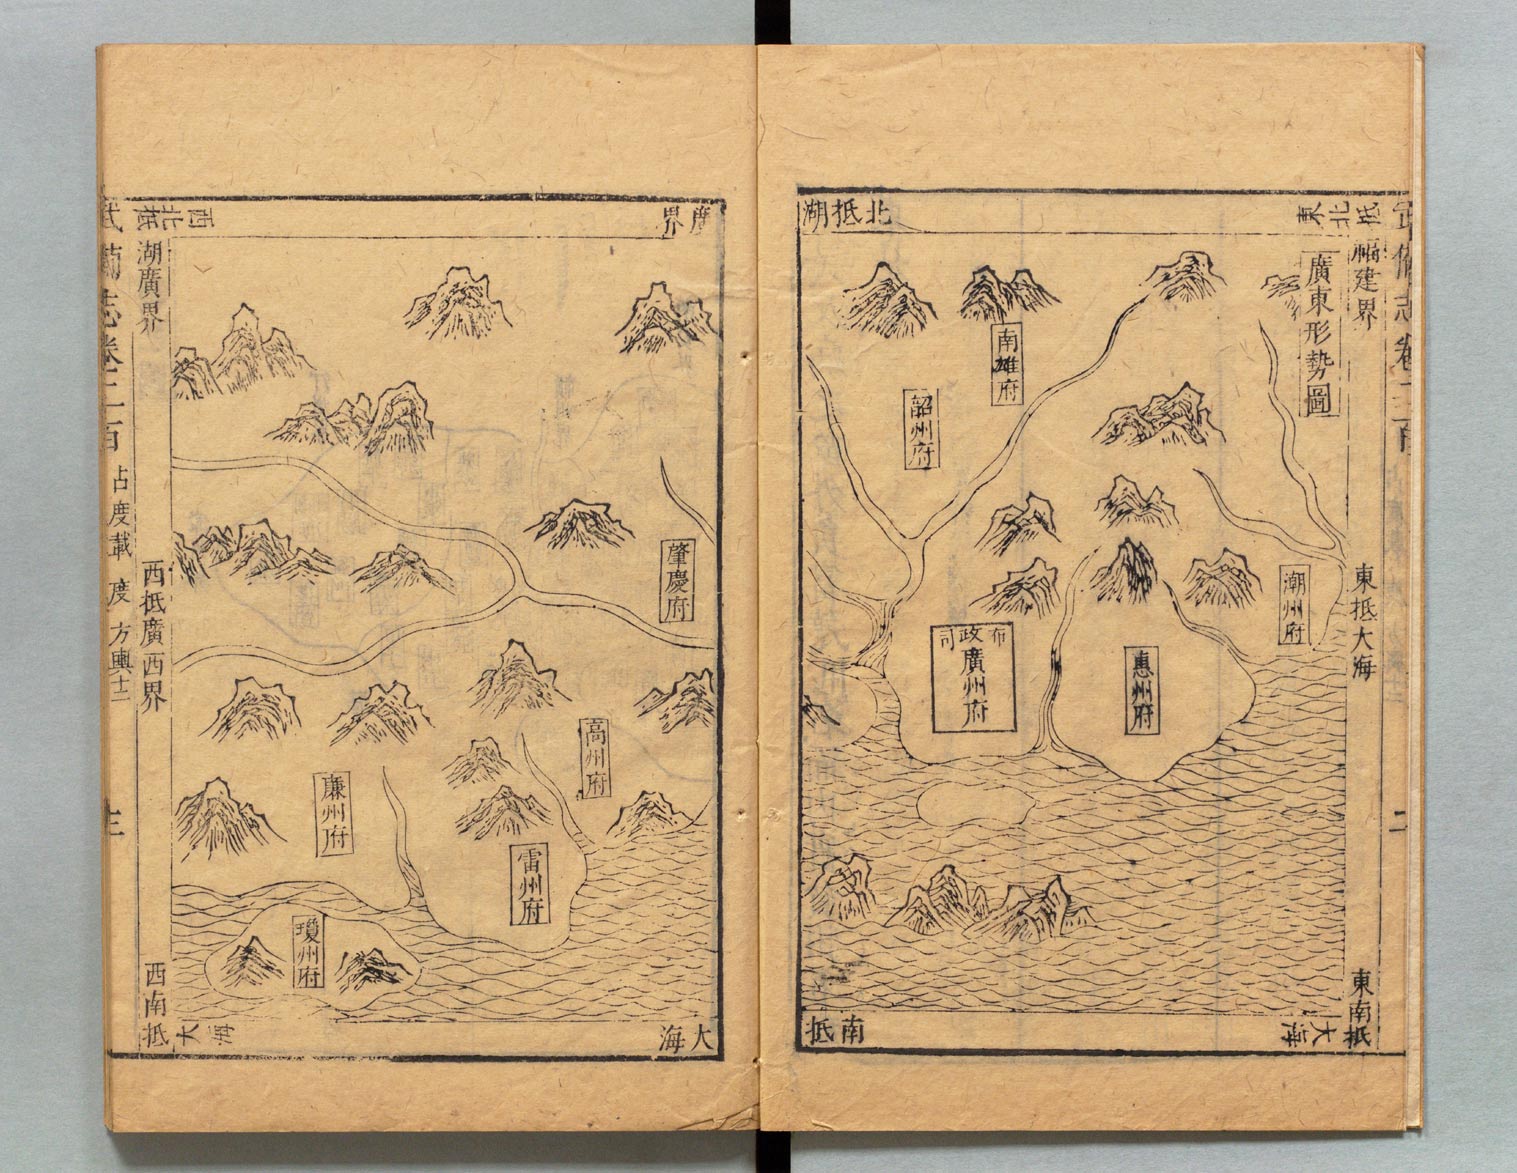 廣東形勢圖
東北抵
福建界
東抵大海
東南抵
大海
北抵湖
廣界
南抵
大海
南雄府
韶州府
潮州府
惠州府
布政司
廣州府
二
肇慶府
高州府
雷州府
廉州府
瓊州府
西北抵
湖廣界
西抵廣西界
西南抵
大海
武備志卷二百
占度載
度
方輿十二
三